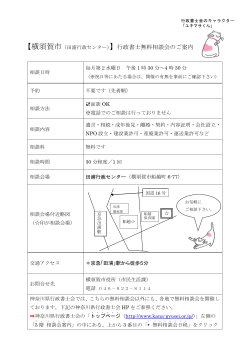 行政書士会のキャラクター
「ユキマサくん」
【横須賀市(田浦行政センター)】行政書士無料相談会のご案内
相談日時
毎月第2水曜日 午後1時30分～4時30分
(※祝日等にあたる場合は、開催の有無を事前にご確認下さい)
予約
不要です(先着順)
相談方法
面談 OK
※電話でのご相談は行っておりません
相談内容
遺言・相続・成年後見・離婚・契約・内容証明・会社設立・
NPO設立・建設業許可・産廃業許可・運送業許可など
相談時間
30分程度/1回
相談会場
田浦行政センター(横須賀市船越町6-77)
相談会場付近略図
(☆印が相談会場)
国道16号
お気軽に
ご相談下さい!
交通アクセス
→京急「田浦」駅から徒歩5分
お問合せ先
横須賀市役所(市民生活課)
電話 046-822-8114
神奈川県行政書士会では、こちらの無料相談会以外にも、各地で無料相談会を開催し
ております。下記の神奈川県行政書士会HPをご参照下さい。
➡神奈川県行政書士会の「トップページ(http://www.kana-gyosei.or.jp/)」左側の
「各種 相談会案内」の中にある、上から3番目の「・無料相談会日程」をクリック